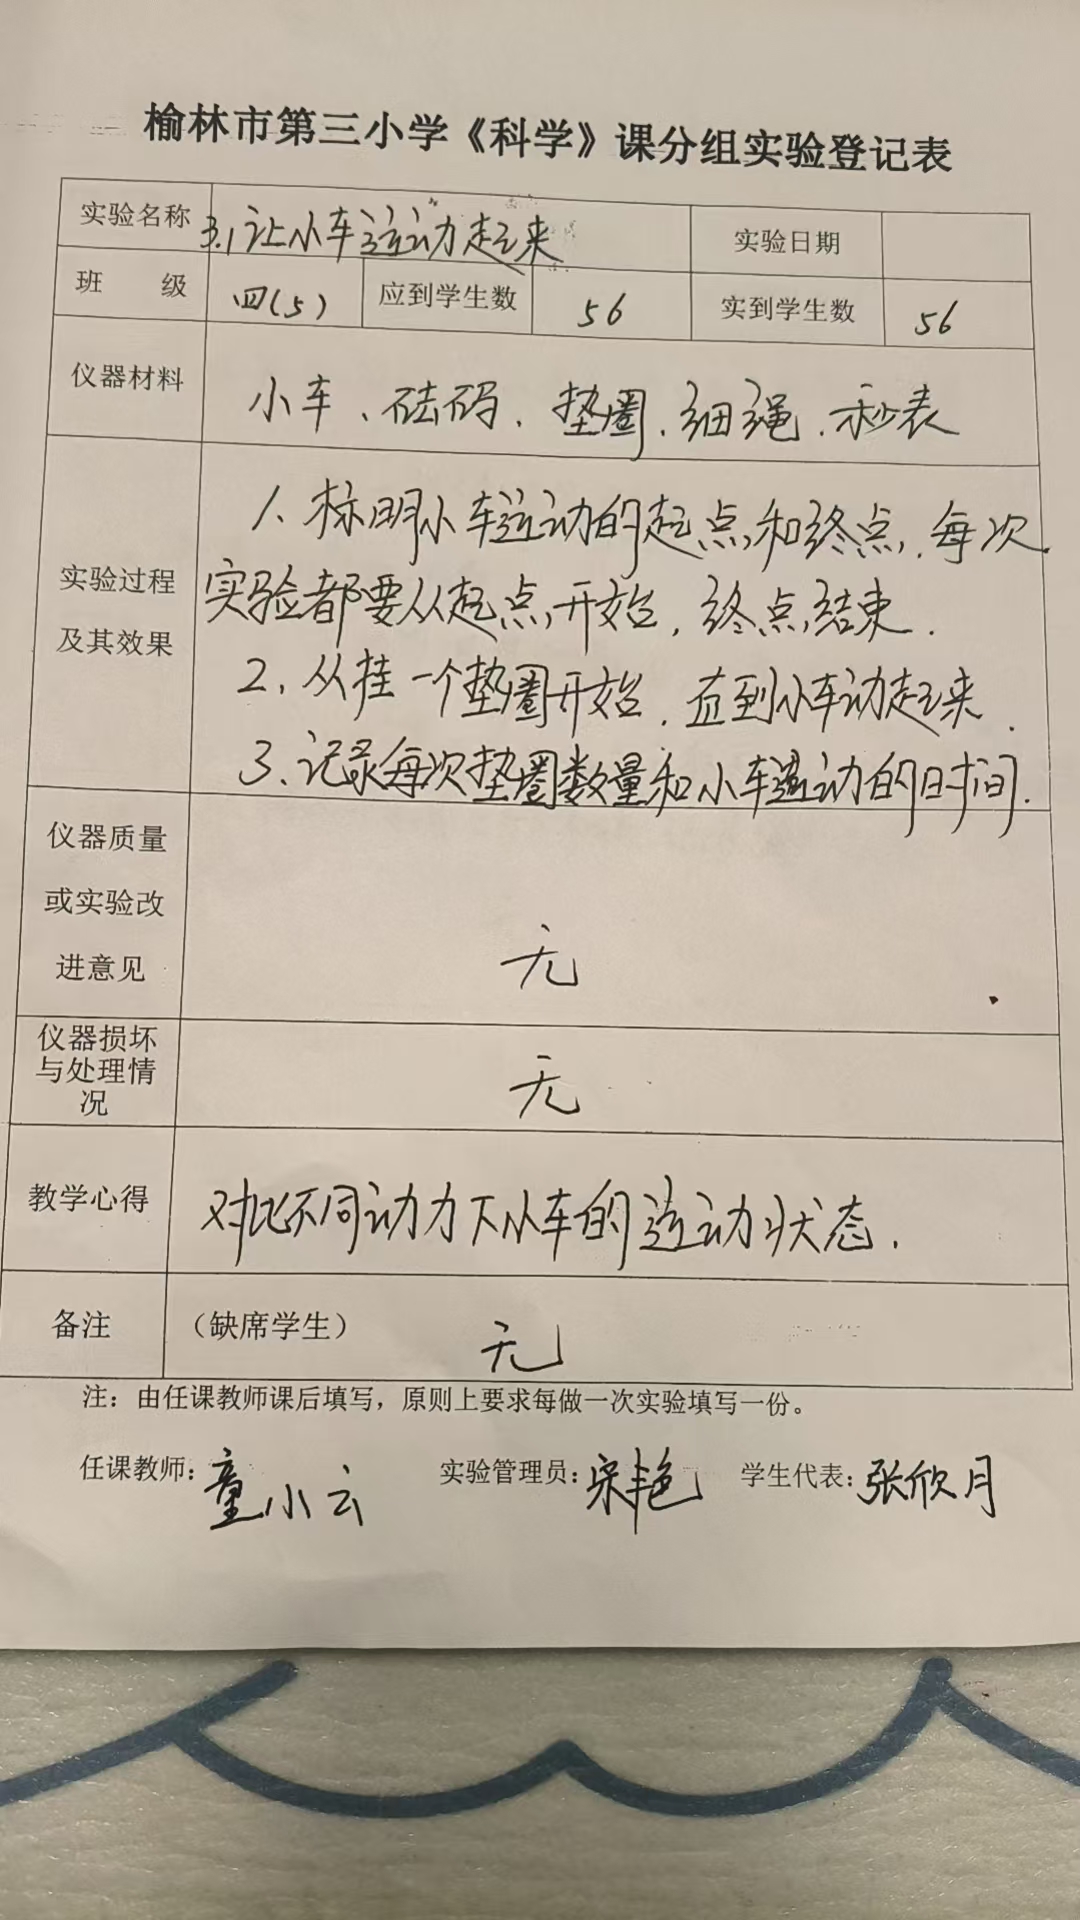 榆林市第三小学《科学》课分组实验登记表
实验名称 3.1让小车运动起来 实验日期
班 级 四(5) 应到学生数 56 实到学生数 56
仪器材料 小车、砝码、垫圈、细绳、秒表
实验过程及其效果
1、标明小车运动的起点和终点,每次
实验都要从起点开始,终点结束.
2、从挂一个垫圈开始,直到小车动起来.
3、记录每次垫圈数量和小车运动的时间.
仪器质量
或实验改
进意见
无
仪器损坏
与处理情
况
无
教学心得 对比不同动力下小车的运动状态.
备注 (缺席学生) 无
注:由任课教师课后填写,原则上要求每做一次实验填写一份。
任课教师:童小云 实验管理员:宋艳 学生代表:张欣月